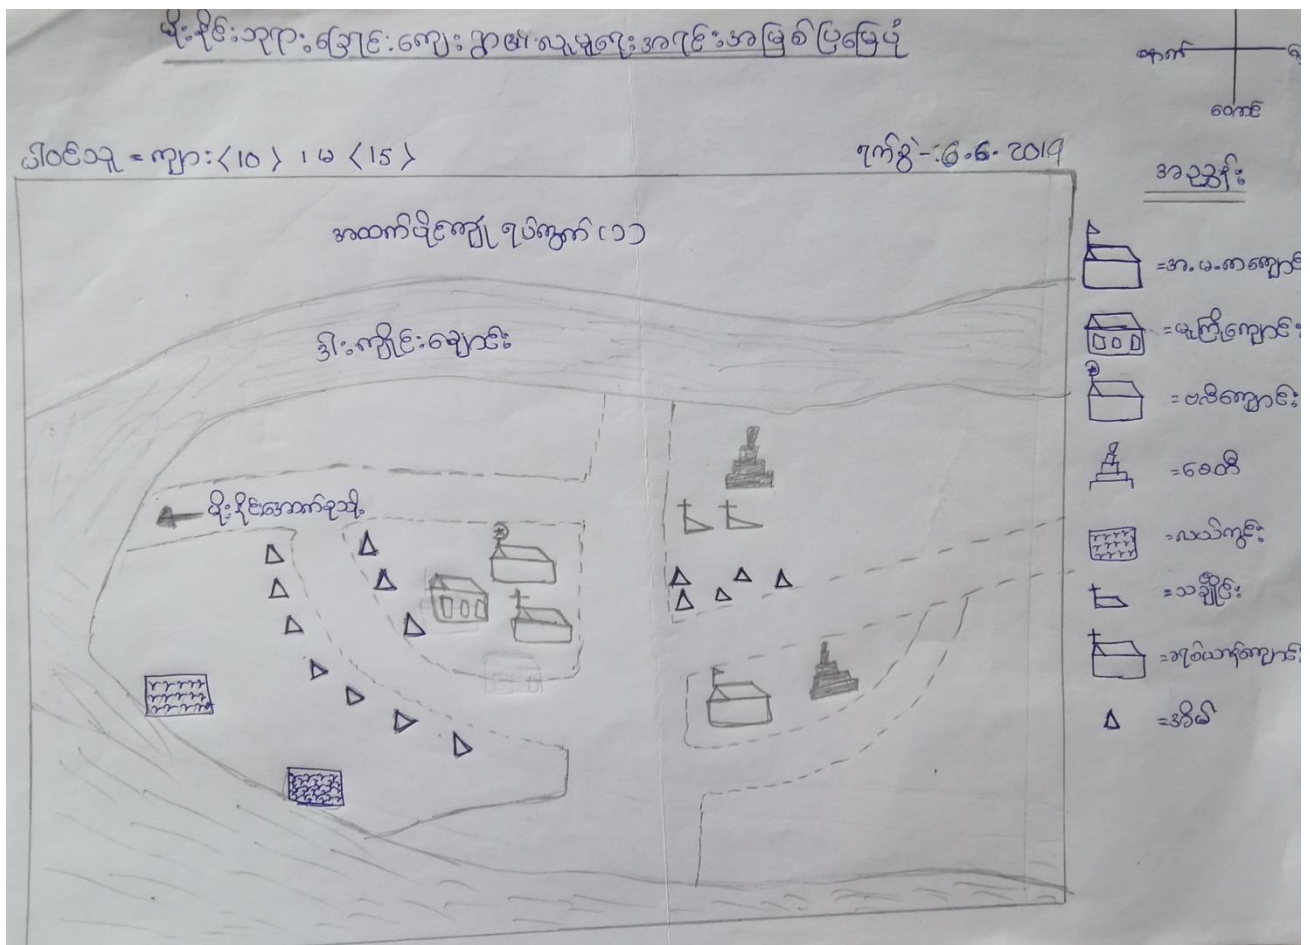 မိုးနိုင်းဘုရားခြောင်းကျေးရွာ၏လူမှုရေးအရင်းအမြစ်ပြမြေပုံ
နောက်
တောင်
ပါဝင်သူ = ကျား <10> ၊ မ <15>
ရက်စွဲ - 6.6.2019
အညွှန်း
အထက်ပိုင်ကျုံ ရပ်ကွက် (၁)
ဒါးကျိုင်းချောင်း
= အ.မ.က ကျောင်း
= မူကြိုကျောင်း
= ဗလီကျောင်း
= စေတီ
မိုးနိုင်းအောက်စုသို့
= လယ်ကွင်း
= သင်္ချိုင်း
= ခရစ်ယာန်ကျောင်း
= အိမ်